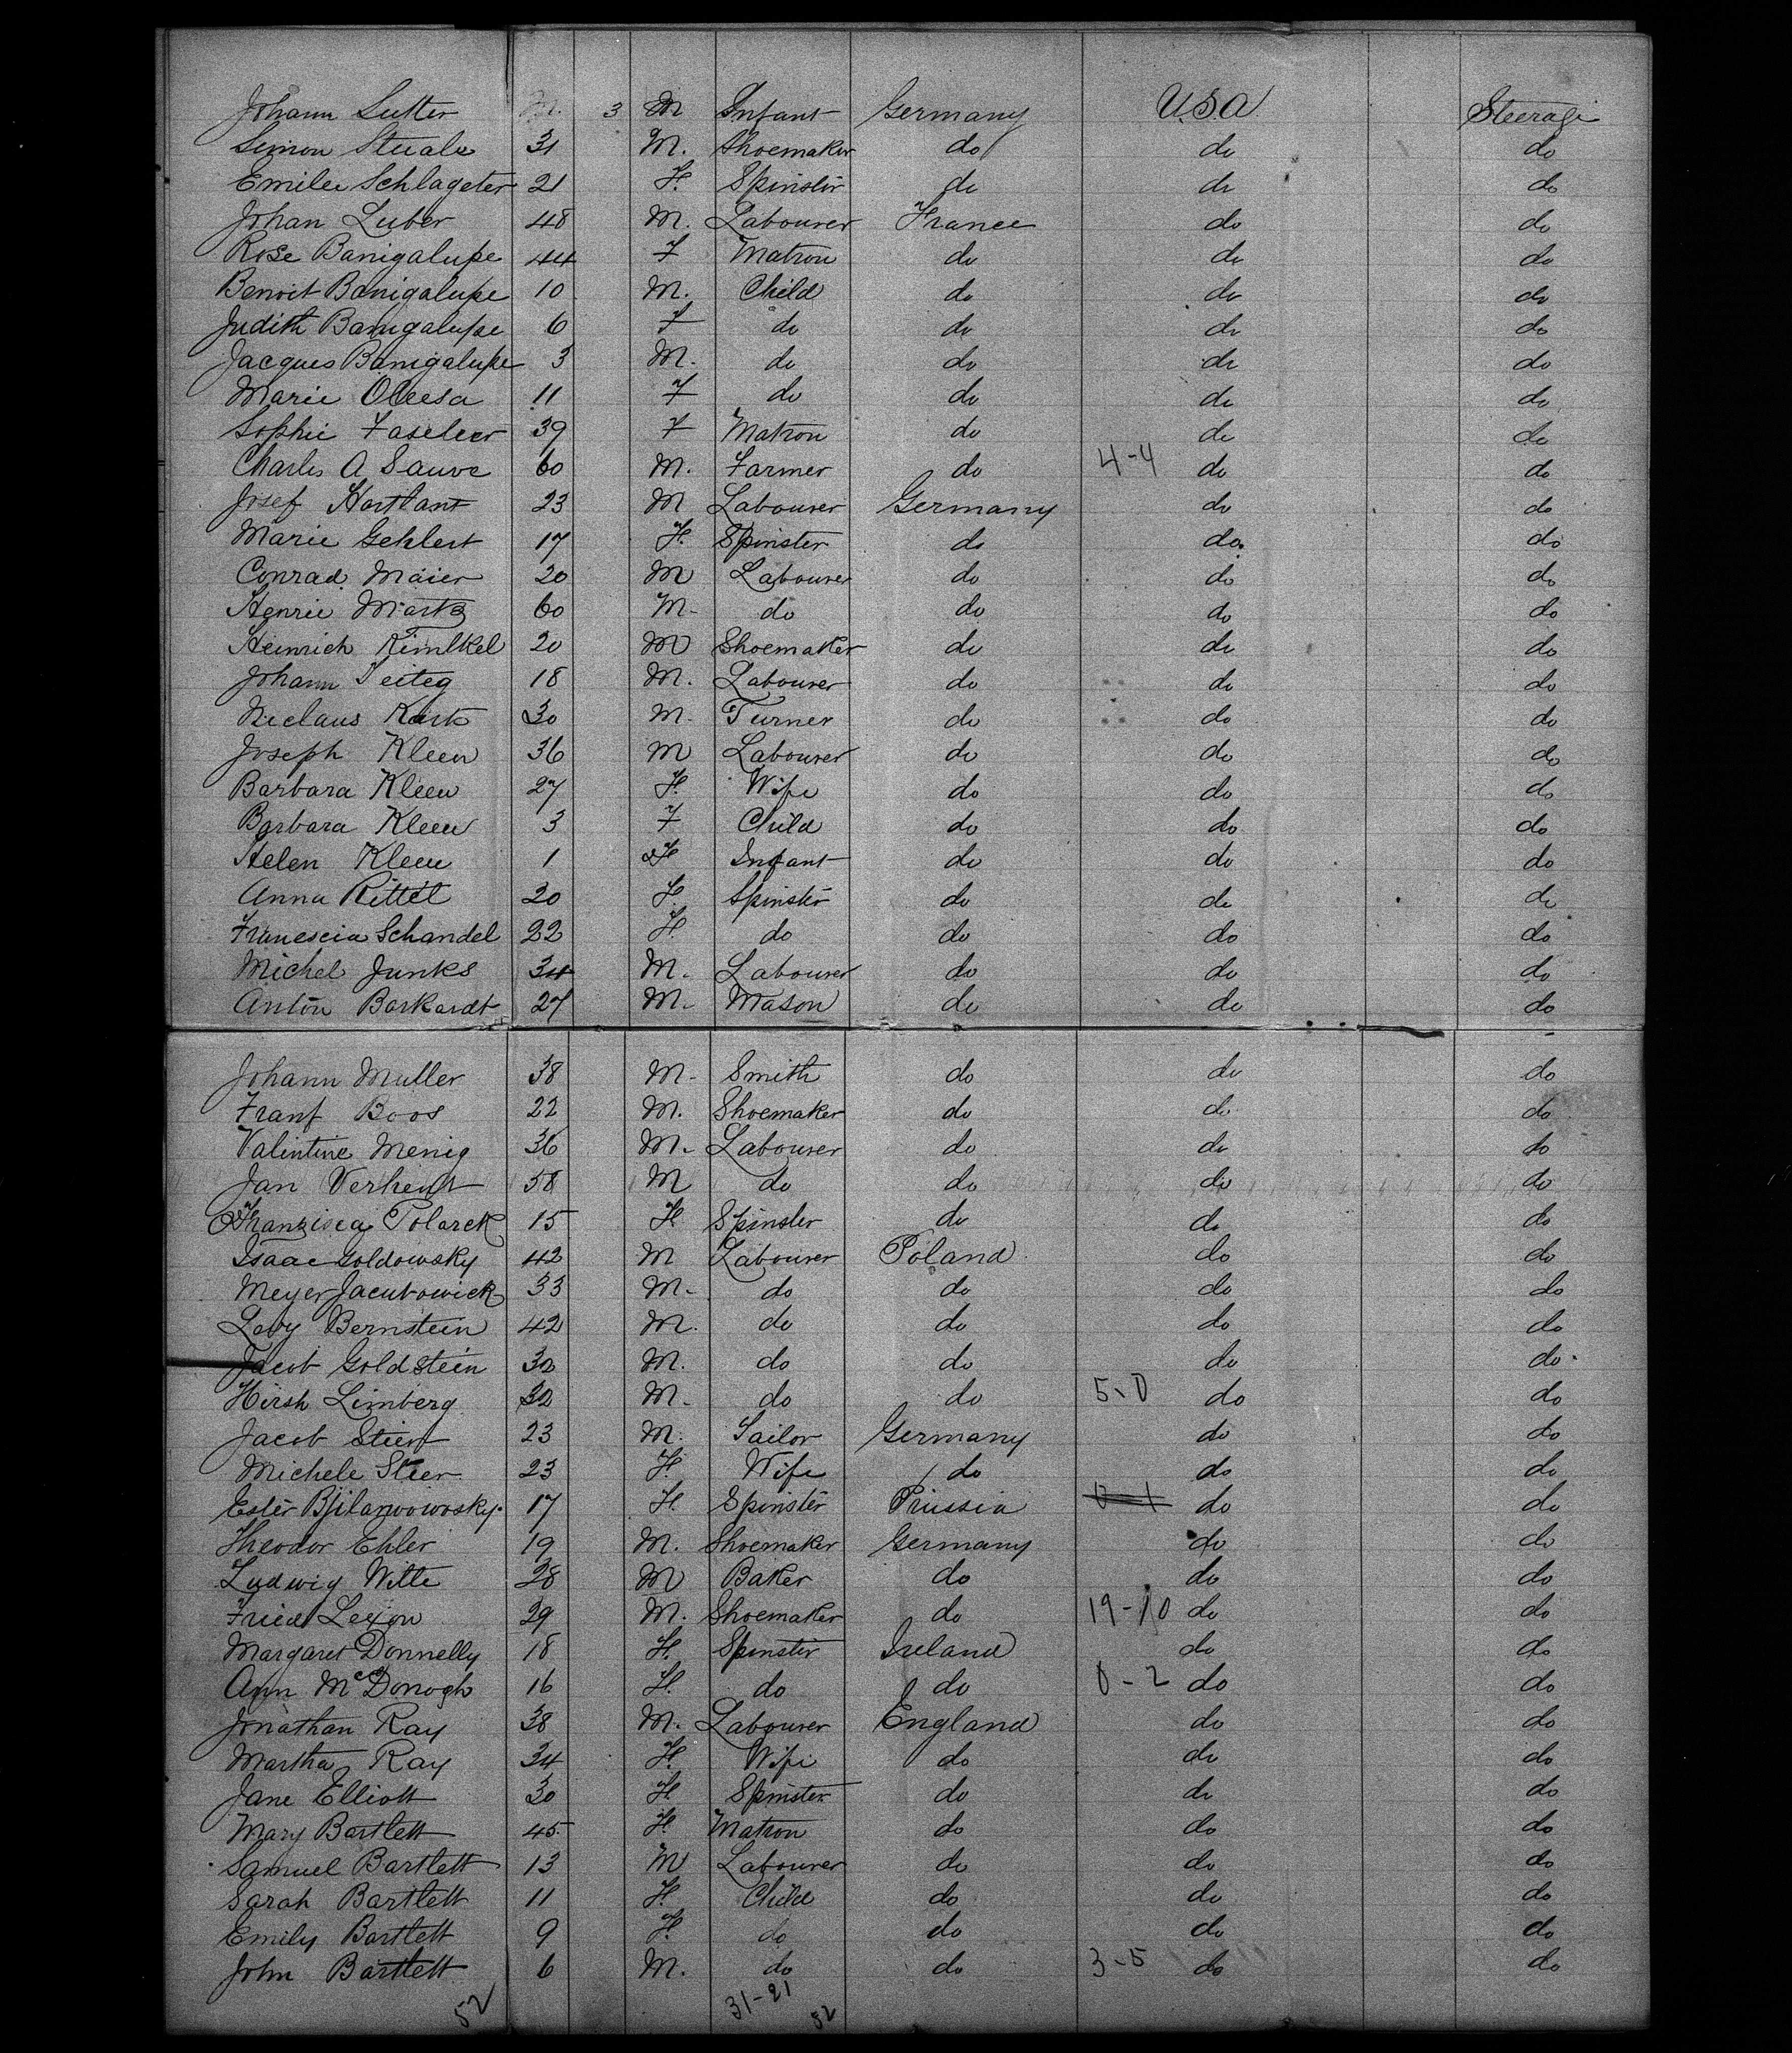 Johann Sutter M. 3 M Infant Germany U.S.A. Steerage
Simon 31 M. Shoemaker do do do
Emilie Schlageter 21 F. Spinster do do do
Johan Luber 48 M. Labourer France do do
Rose Banigalupe 44 F Matron do do do
Benoit Banigalupe 10 M. Child do do do
Judith Banigalupe 6 F do do do do
Jacques Banigalupe 3 M. do do do do
Marie 11 F do do do do
Sophie Faseleer 39 F Matron do do do
Charles A Sauve 60 M. Farmer do 4-4 do do
Josef Hartlant 23 M Labourer Germany do do
Marie Gehlert 17 F. Spinster do do. do
Conrad Maier 20 M Labourer do do do
Henrie Martz 60 M- do do do do
Heinrich 20 M Shoemaker do do do
Johann 18 M. Labourer do do do
Niclaus 30 M- Turner do do do
Joseph Kleen 36 M Labourer do do do
Barbara Kleen 27 F. Wife do do do
Barbara Kleen 3 F Child do do do
Helen Kleen 1 F Infant do do do
Anna Rittel 20 F. Spinster do do do
Franescia Schandel 22 F. do do do do
Michel Junks 34 M- Labourer do do do
Anton Barkardt 27 M- Mason do do do
Johann Muller 38 M- Smith do do do
Franf Boos 22 M. Shoemaker do do do
Valintine Menig 36 M- Labourer do do do
Jan 58 M do do do do
Franzisca Polarek 15 F Spinster do do do
Isaac Goldowsky 42 M Labourer Poland do do
Meyer Jacubowick 33 M- do do do do
Levy Bernstein 42 M. do do do do
Jacob Goldstein 30 M. do do do do.
Hirsh Limberg 32 M- do do 5-0 do do
Jacob 23 M. Germany do do
Michele Steer 23 F. Wife do do do
Ester 17 F. Spinster Prussia do do
Theodor Ehler 19 M. Shoemaker Germany do do
Ludwig Witte 28 M Baker do do do
Fried 29 M. Shoemaker do 19-10 do do
Margaret Donnelly 18 F. Spinster Ireland do do
Ann McDonogh 16 F. do do 0-2 do do
Jonathan Ray 38 M. Labourer England do do
Martha Ray 34 F. Wife do do do
Jane Elliott 30 F Spinster do do do
Mary Bartlett 45 F Matron do do do
Samuel Bartlett 13 M Labourer do do do
Sarah Bartlett 11 F. Child do do do
Emily Bartlett 9 F. do do do do
John Bartlett 6 M. do do 3-5 do do
52 31-21 52